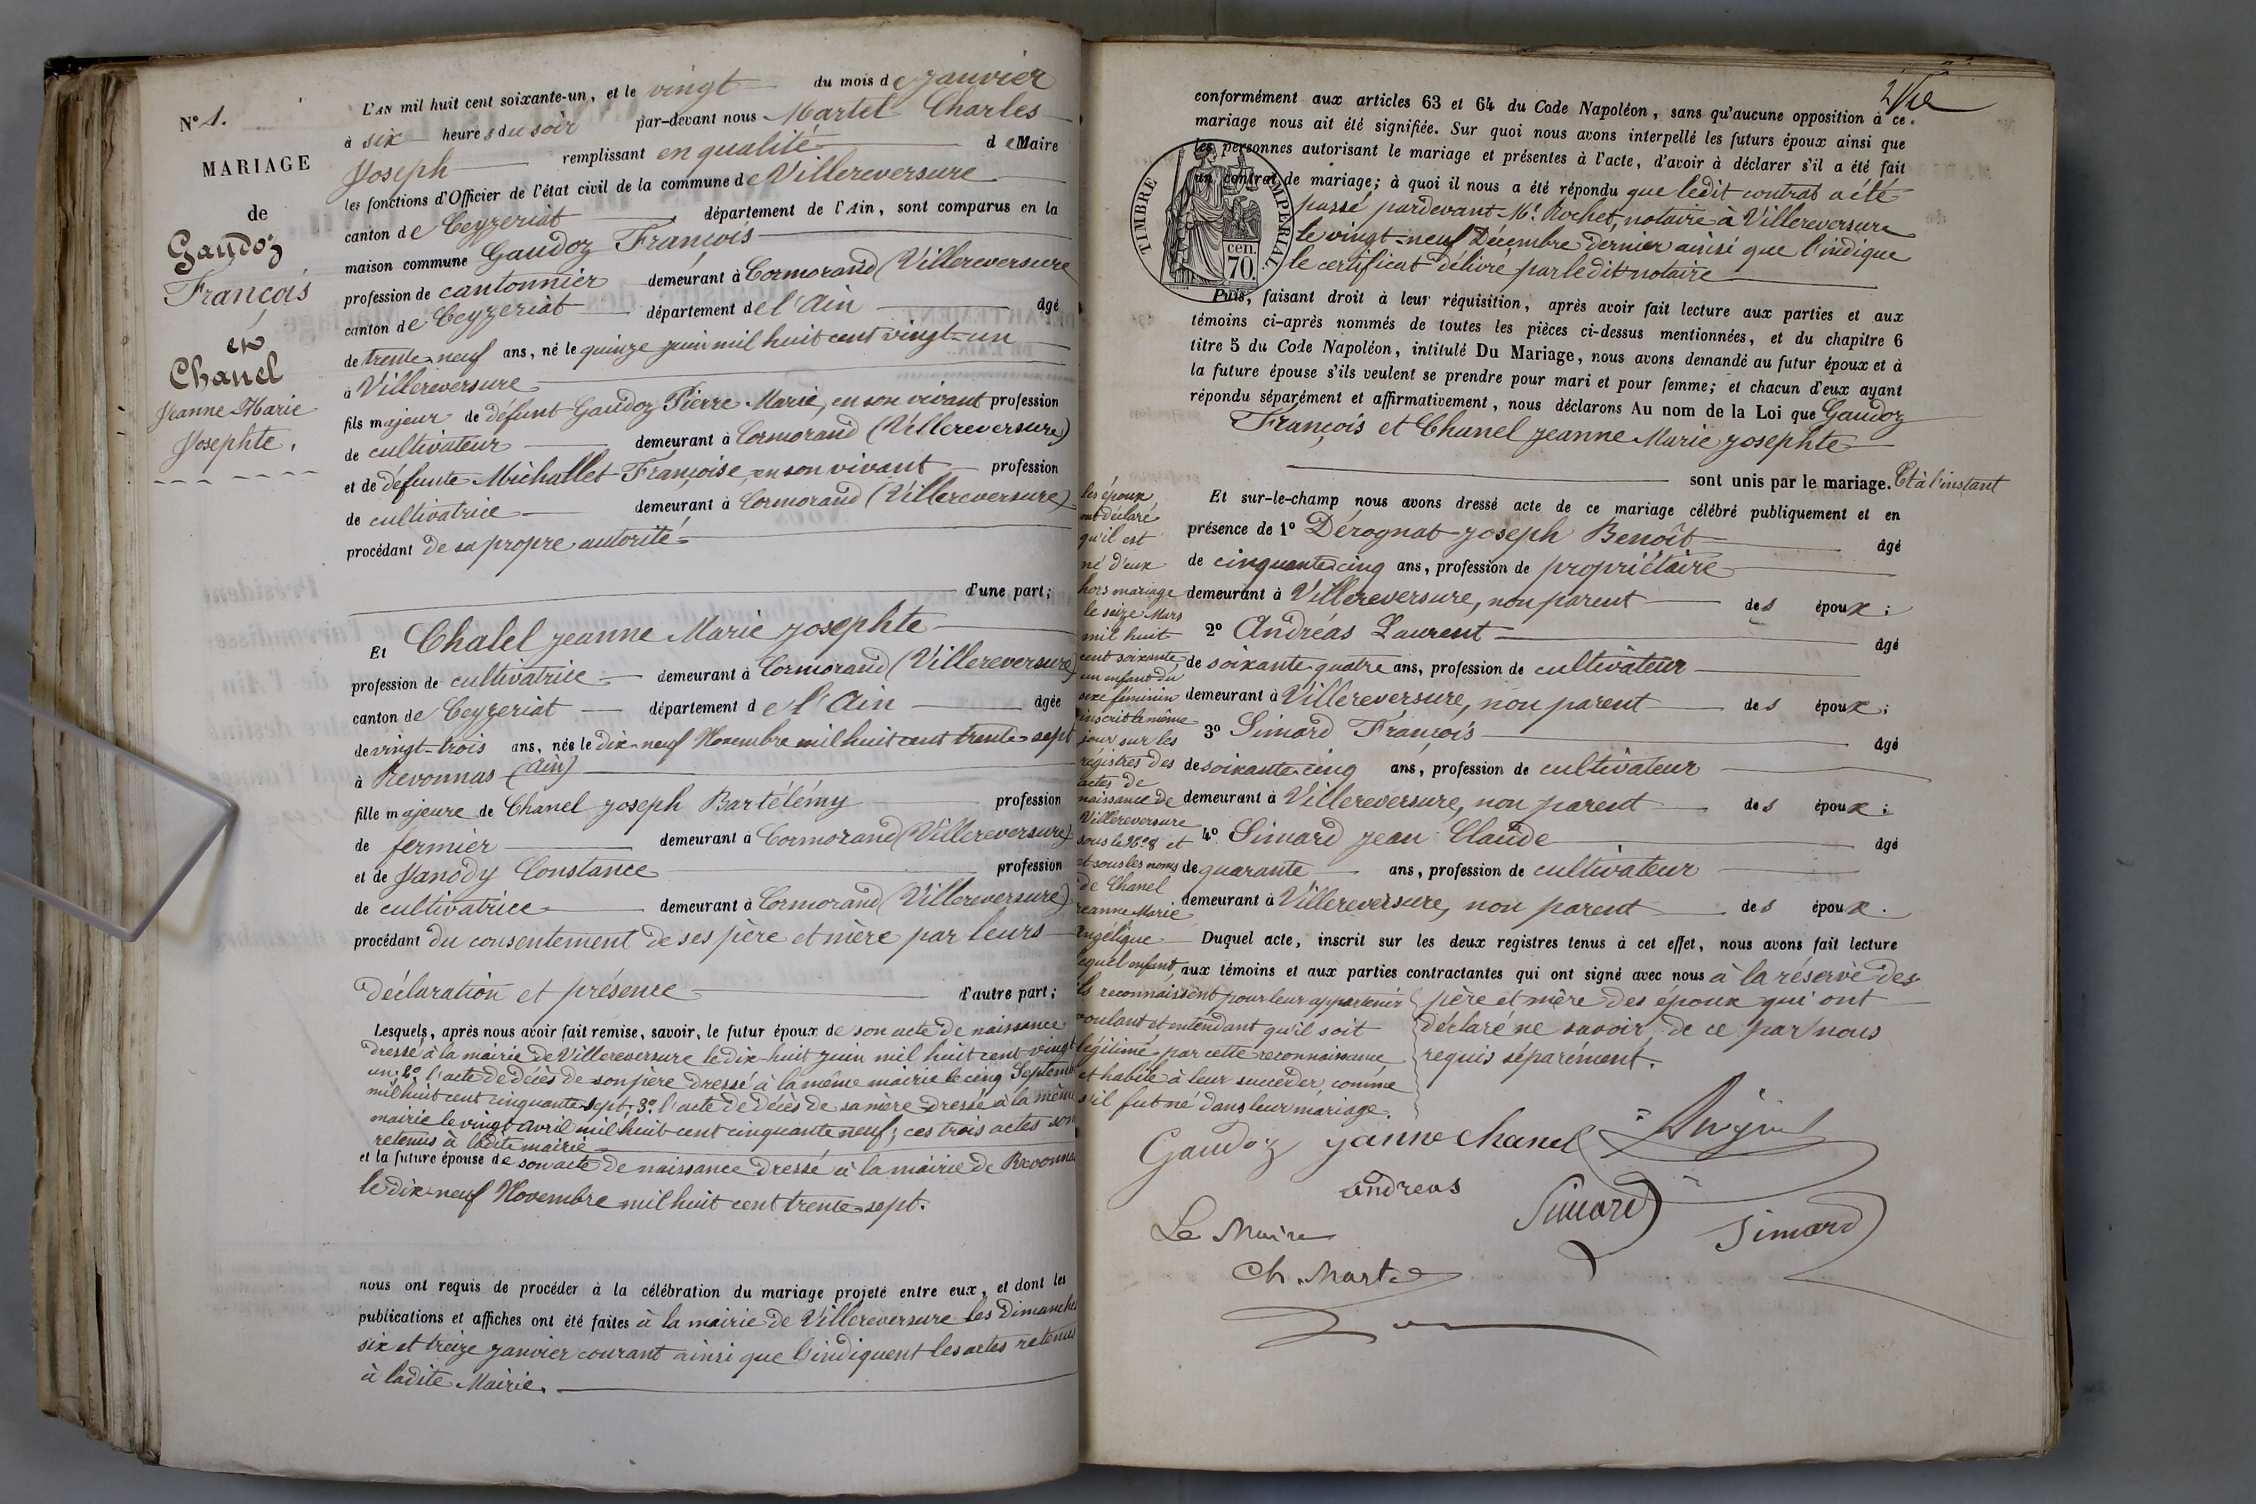 N° 1.
MARIAGE
de
Gaudoz
François
et
Chanel
Jeanne Marie
Josephte.
L'AN mil huit cent soixante-un, et le vingt du mois de Janvier
à six heures du soir par-devant nous Martel Charles
Joseph remplissant en qualité de Maire
les fonctions d'Officier de l'état civil de la commune de Villereversure
canton de Ceyzeriat, département de l'Ain, sont comparus en la
maison commune Gaudoz François
profession de cantonnier demeurant à Cormorand (Villereversure
canton de Ceyzeriat département de l'Ain âgé
de trente-neuf ans, né le quinze juin mil huit cent vingt-un
à Villereversure
fils majeur de défunt Gaudoz Pierre Marie, en son vivant profession
de cultivateur demeurant à Cormorand (Villereversure)
et de défunte Michallet Françoise, en son vivant profession
de cultivatrice demeurant à Cormorand (Villereversure)
procédant de sa propre autorité
d'une part;
Et Chalel Jeanne Marie Josephte
profession de cultivatrice demeurant à Cormorand (Villereversure)
canton de Ceyzeriat département de l'Ain âgée
de vingt-trois ans, née le dix-neuf Novembre mil huit cent trente-sept
à Revonnas (Ain)
fille majeure de Chanel Joseph Bartélémy profession
de fermier demeurant à Cormorand (Villereversure)
et de Janody Constance profession
de cultivatrice demeurant à Cormorand (Villereversure)
procédant du consentement de ses père et mère par leurs
déclaration et présence d'autre part;
Lesquels, après nous avoir fait remise, savoir, le futur époux de son acte de naissance
dressé à la mairie de Villereversure le dix-huit juin mil huit cent vingt
un; 2° l'acte de décès de son père dressé à la même mairie le cinq Septemb
mil huit cent cinquante-sept; 3° l'acte de décès de sa mère dressé à la même
mairie le vingt avril mil huit cent cinquante neuf; ces trois actes son
retenus à ladite mairie
et la future épouse de son acte de naissance dressé à la mairie de Revonna
le dix-neuf Novembre mil huit cent trente-sept.
nous ont requis de procéder à la célébration du mariage projeté entre eux, et dont les
publications et affiches ont été faites à la mairie de Villereversure les Dimanches
six et treize janvier courant ainsi que l'indiquent les actes retenus
à ladite Mairie.
2
conformément aux articles 63 et 64 du Code Napoléon, sans qu'aucune opposition à ce
mariage nous ait été signifiée. Sur quoi nous avons interpellé les futurs époux ainsi que
les personnes autorisant le mariage et présentes à l'acte, d'avoir à déclarer s'il a été fait
un contrat de mariage; à quoi il nous a été répondu que ledit contrat a été
passé pardevant Me Rochet, notaire à Villereversure
le vingt-neuf Décembre dernier ainsi que l'indique
le certificat délivré par ledit notaire
TIMBRE IMPÉRIAL.
cen.
70.
Puis, faisant droit à leur réquisition, après avoir fait lecture aux parties et aux
témoins ci-après nommés de toutes les pièces ci-dessus mentionnées, et du chapitre 6
titre 5 du Code Napoléon, intitulé Du Mariage, nous avons demandé au futur époux et à
la future épouse s'ils veulent se prendre pour mari et pour femme; et chacun d'eux ayant
répondu séparément et affirmativement, nous déclarons Au nom de la Loi que Gaudoz
François et Chanel Jeanne Marie Josephte
sont unis par le mariage. Et à l'instant
les époux
ont déclaré
qu'il est
né d'eux
hors mariage
le seize Mars
mil huit
cent soixante,
un enfant du
sexe féminin
inscrit le même
jour sur les
régistres des
actes de
naissance de
Villereversure
sous le N° 8 et
et sous les noms
de Chanel
Jeanne Marie
Angélique
lequel enfant,
ils reconnaissent pour leur appartenir
voulant et entendant qu'il soit
légitimé par cette reconnaissance
et habile à leur succéder, comme
s'il fut né dans leur mariage.
Et sur-le-champ nous avons dressé acte de ce mariage célébré publiquement et en
présence de 1° Dérognat Joseph Benoît âgé
de cinquante-cinq ans, profession de propriétaire
demeurant à Villereversure, non parent des époux;
2° Andréas Laurent âgé
de soixante-quatre ans, profession de cultivateur
demeurant à Villereversure, non parent des époux;
3° Simard François âgé
de soixante-cinq ans, profession de cultivateur
demeurant à Villereversure, non parent des époux;
4° Simard Jean Claude âgé
de quarante ans, profession de cultivateur
demeurant à Villereversure, non parent des époux.
Duquel acte, inscrit sur les deux registres tenus à cet effet, nous avons fait lecture
aux témoins et aux parties contractantes qui ont signé avec nous à la réserve des
père et mère des époux qui ont
déclaré ne savoir, de ce par nous
requis séparément.
Gaudoz Janne Chanel
andreas Simard Simard
Le Maire
Ch. Martel